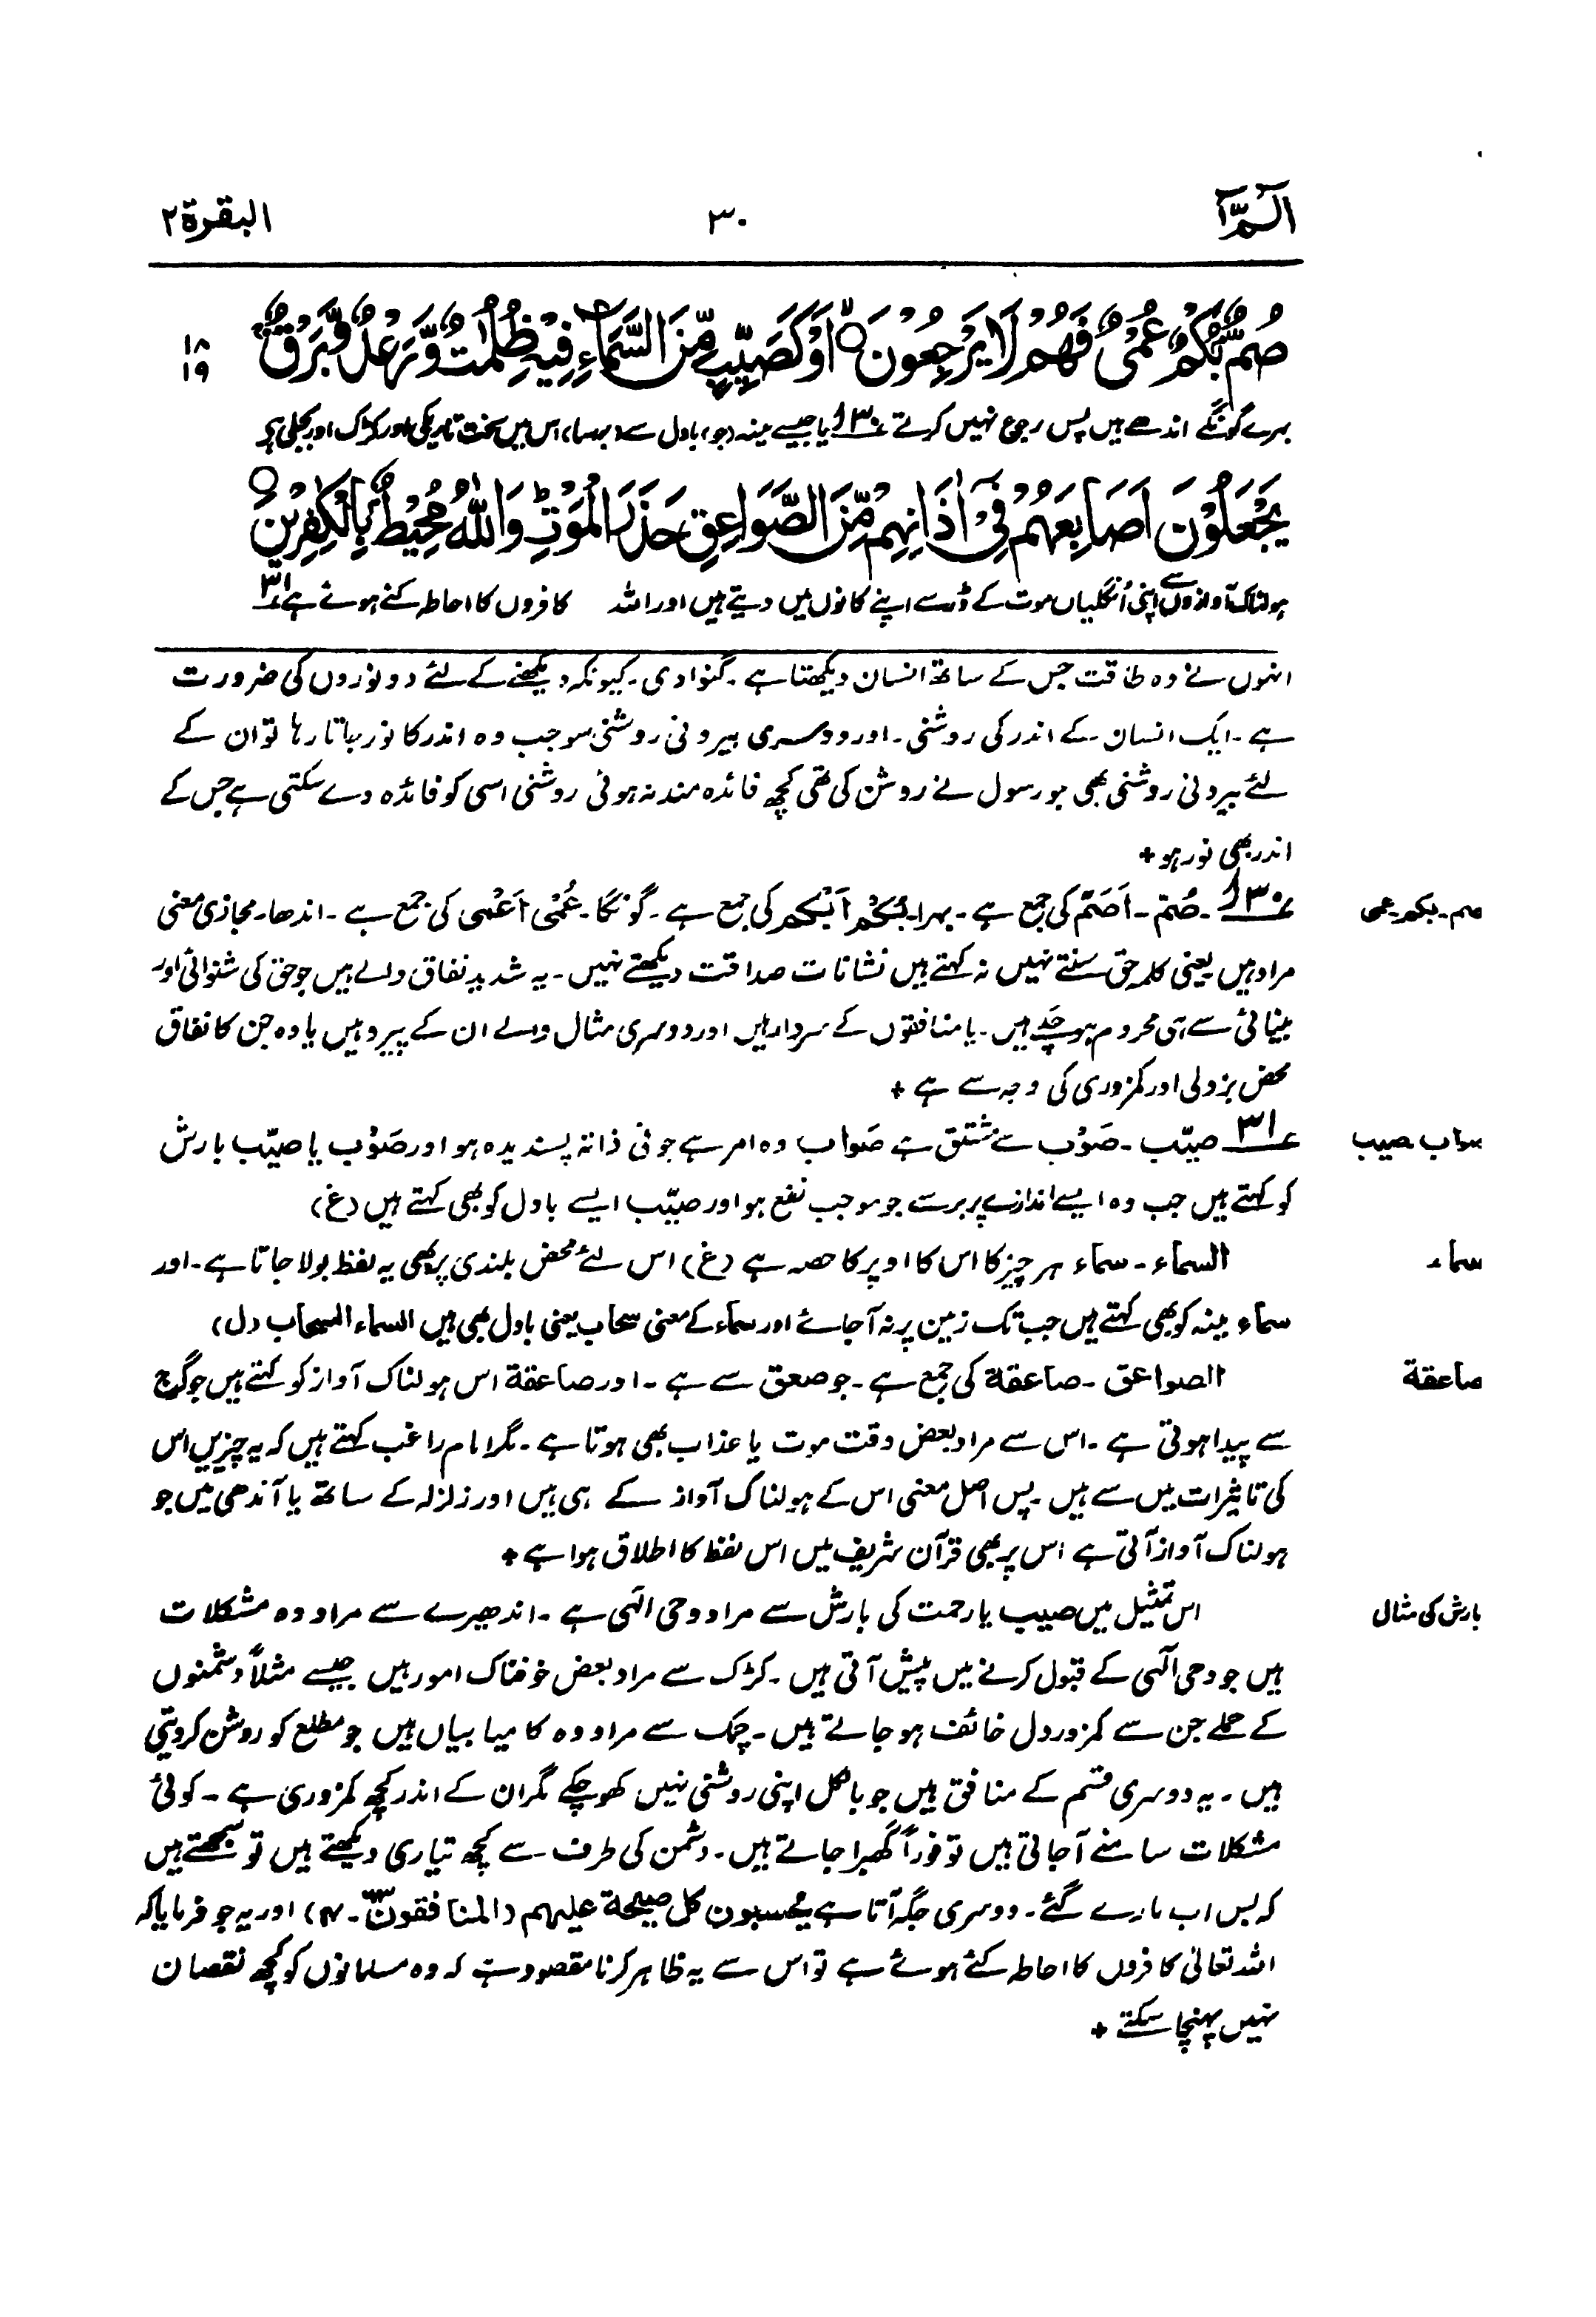 الٓمّٓ ۱
۳۰
البقرة ۲
صُمٌّۢ بُكْمٌ عُمْىٌ فَهُمْ لَا يَرْجِعُوْنَ ۙ اَوْ كَصَيِّبٍ مِّنَ السَّمَآءِ فِيْهِ ظُلُمٰتٌ وَّرَعْدٌ وَّبَرْقٌ ۚ
۱۸
۱۹
بہرے گونگے اندھے ہیں پس رجوع نہیں کرتے ۳۰ یا جیسے مینہ (جو) بادل سے (برسا) اس میں سخت تاریکی اور کڑک اور بجلی ہو
يَجْعَلُوْنَ اَصَابِعَهُمْ فِيْٓ اٰذَانِهِمْ مِّنَ الصَّوَاعِقِ حَذَرَ الْمَوْتِ ؕ وَاللّٰهُ مُحِيْطٌۢ بِالْكٰفِرِيْنَ ○
ہولناک آوازوں سے اپنی اُنگلیاں موت کے ڈر سے اپنے کانوں میں دیتے ہیں اور اللہ کافروں کا احاطہ کئے ہوئے ہے ۳۱
انہوں نے وہ طاقت جس کے ساتھ انسان دیکھتا ہے۔ گنوا دی۔ کیونکہ دیکھنے کے لئے دو نوروں کی ضرورت
ہے۔ ایک انسان کے اندر کی روشنی۔ اور دوسری بیرونی روشنی سو جب وہ اندر کا نور جاتا رہا تو ان کے
لئے بیرونی روشنی بھی جو رسول نے روشن کی تھی کچھ فائدہ مند نہ ہوئی روشنی اسی کو فائدہ دے سکتی ہے جس کے
اندر بھی نور ہو +
صم۔ بکم۔ عمی
۳۰ ۔ صُمّ۔ اَصَمّ کی جمع ہے۔ بہرا۔ بُکْم اَبْکم کی جمع ہے۔ گونگا۔ عُمْی اَعْمٰی کی جمع ہے۔ اندھا۔ مجازی معنی
مراد ہیں یعنی کلمہ حق سنتے نہیں نہ کہتے ہیں نشانات صداقت دیکھتے نہیں۔ یہ شدید نفاق والے ہیں جو حق کی شنوائی اور
بینائی سے ہی محروم ہو چکے ہیں۔ یا منافقوں کے سردار ہیں اور دوسری مثال والے ان کے پیرو ہیں یا وہ جن کا نفاق
محض بزدلی اور کمزوری کی وجہ سے ہے +
صواب۔ صیب
۳۱ صیّب۔ صَوْب سے مشتق ہے صَواب وہ امر ہے جو فی ذاتہ پسندیدہ ہو اور صَوْب یا صیّب بارش
کو کہتے ہیں جب وہ ایسے اندازے پر برسے جو موجب نفع ہو اور صیّب ایسے بادل کو بھی کہتے ہیں (غ)
سماء
السماء۔ سماء ہر چیز کا اس کا اوپر کا حصہ ہے (غ) اس لئے محض بلندی پر بھی یہ لفظ بولا جاتا ہے۔ اور
سماء مینہ کو بھی کہتے ہیں جب تک زمین پر نہ آ جائے اور سماء کے معنی سحاب یعنی بادل بھی ہیں السماء السحاب (ل)
صاعقة
الصواعق۔ صاعقة کی جمع ہے۔ جو صعق سے ہے۔ اور صاعقة اس ہولناک آواز کو کہتے ہیں جو گرج
سے پیدا ہوتی ہے۔ اس سے مراد بعض وقت موت یا عذاب بھی ہوتا ہے۔ مگر امام راغب کہتے ہیں کہ یہ چیزیں اس
کی تاثیرات میں سے ہیں۔ پس اصل معنی اس کے ہولناک آواز کے ہی ہیں اور زلزلہ کے ساتھ یا آندھی میں جو
ہولناک آواز آتی ہے اس پر بھی قرآن شریف میں اس لفظ کا اطلاق ہوا ہے +
بارش کی مثال
اس تمثیل میں صیب یا رحمت کی بارش سے مراد وحی الٰہی ہے۔ اندھیرے سے مراد وہ مشکلات
ہیں جو وحی الٰہی کے قبول کرنے میں پیش آتی ہیں۔ کڑک سے مراد بعض خوفناک امور ہیں جیسے مثلاً دشمنوں
کے حملے جن سے کمزور دل خائف ہو جاتے ہیں۔ چمک سے مراد وہ کامیابیاں ہیں جو مطلع کو روشن کر دیتی
ہیں۔ یہ دوسری قسم کے منافق ہیں جو بالکل اپنی روشنی نہیں کھو چکے مگر ان کے اندر کچھ کمزوری ہے۔ کوئی
مشکلات سامنے آ جاتی ہیں تو فوراً گھبرا جاتے ہیں۔ دشمن کی طرف سے کچھ تیاری دیکھتے ہیں تو سمجھتے ہیں
کہ بس اب مارے گئے۔ دوسری جگہ آتا ہے یحسبون کل صیحة علیہم (المنافقون ۶۳۔۴) اور یہ جو فرمایا کہ
اللہ تعالیٰ کافروں کا احاطہ کئے ہوئے ہے تو اس سے یہ ظاہر کرنا مقصود ہے کہ وہ مسلمانوں کو کچھ نقصان
نہیں پہنچا سکتے +